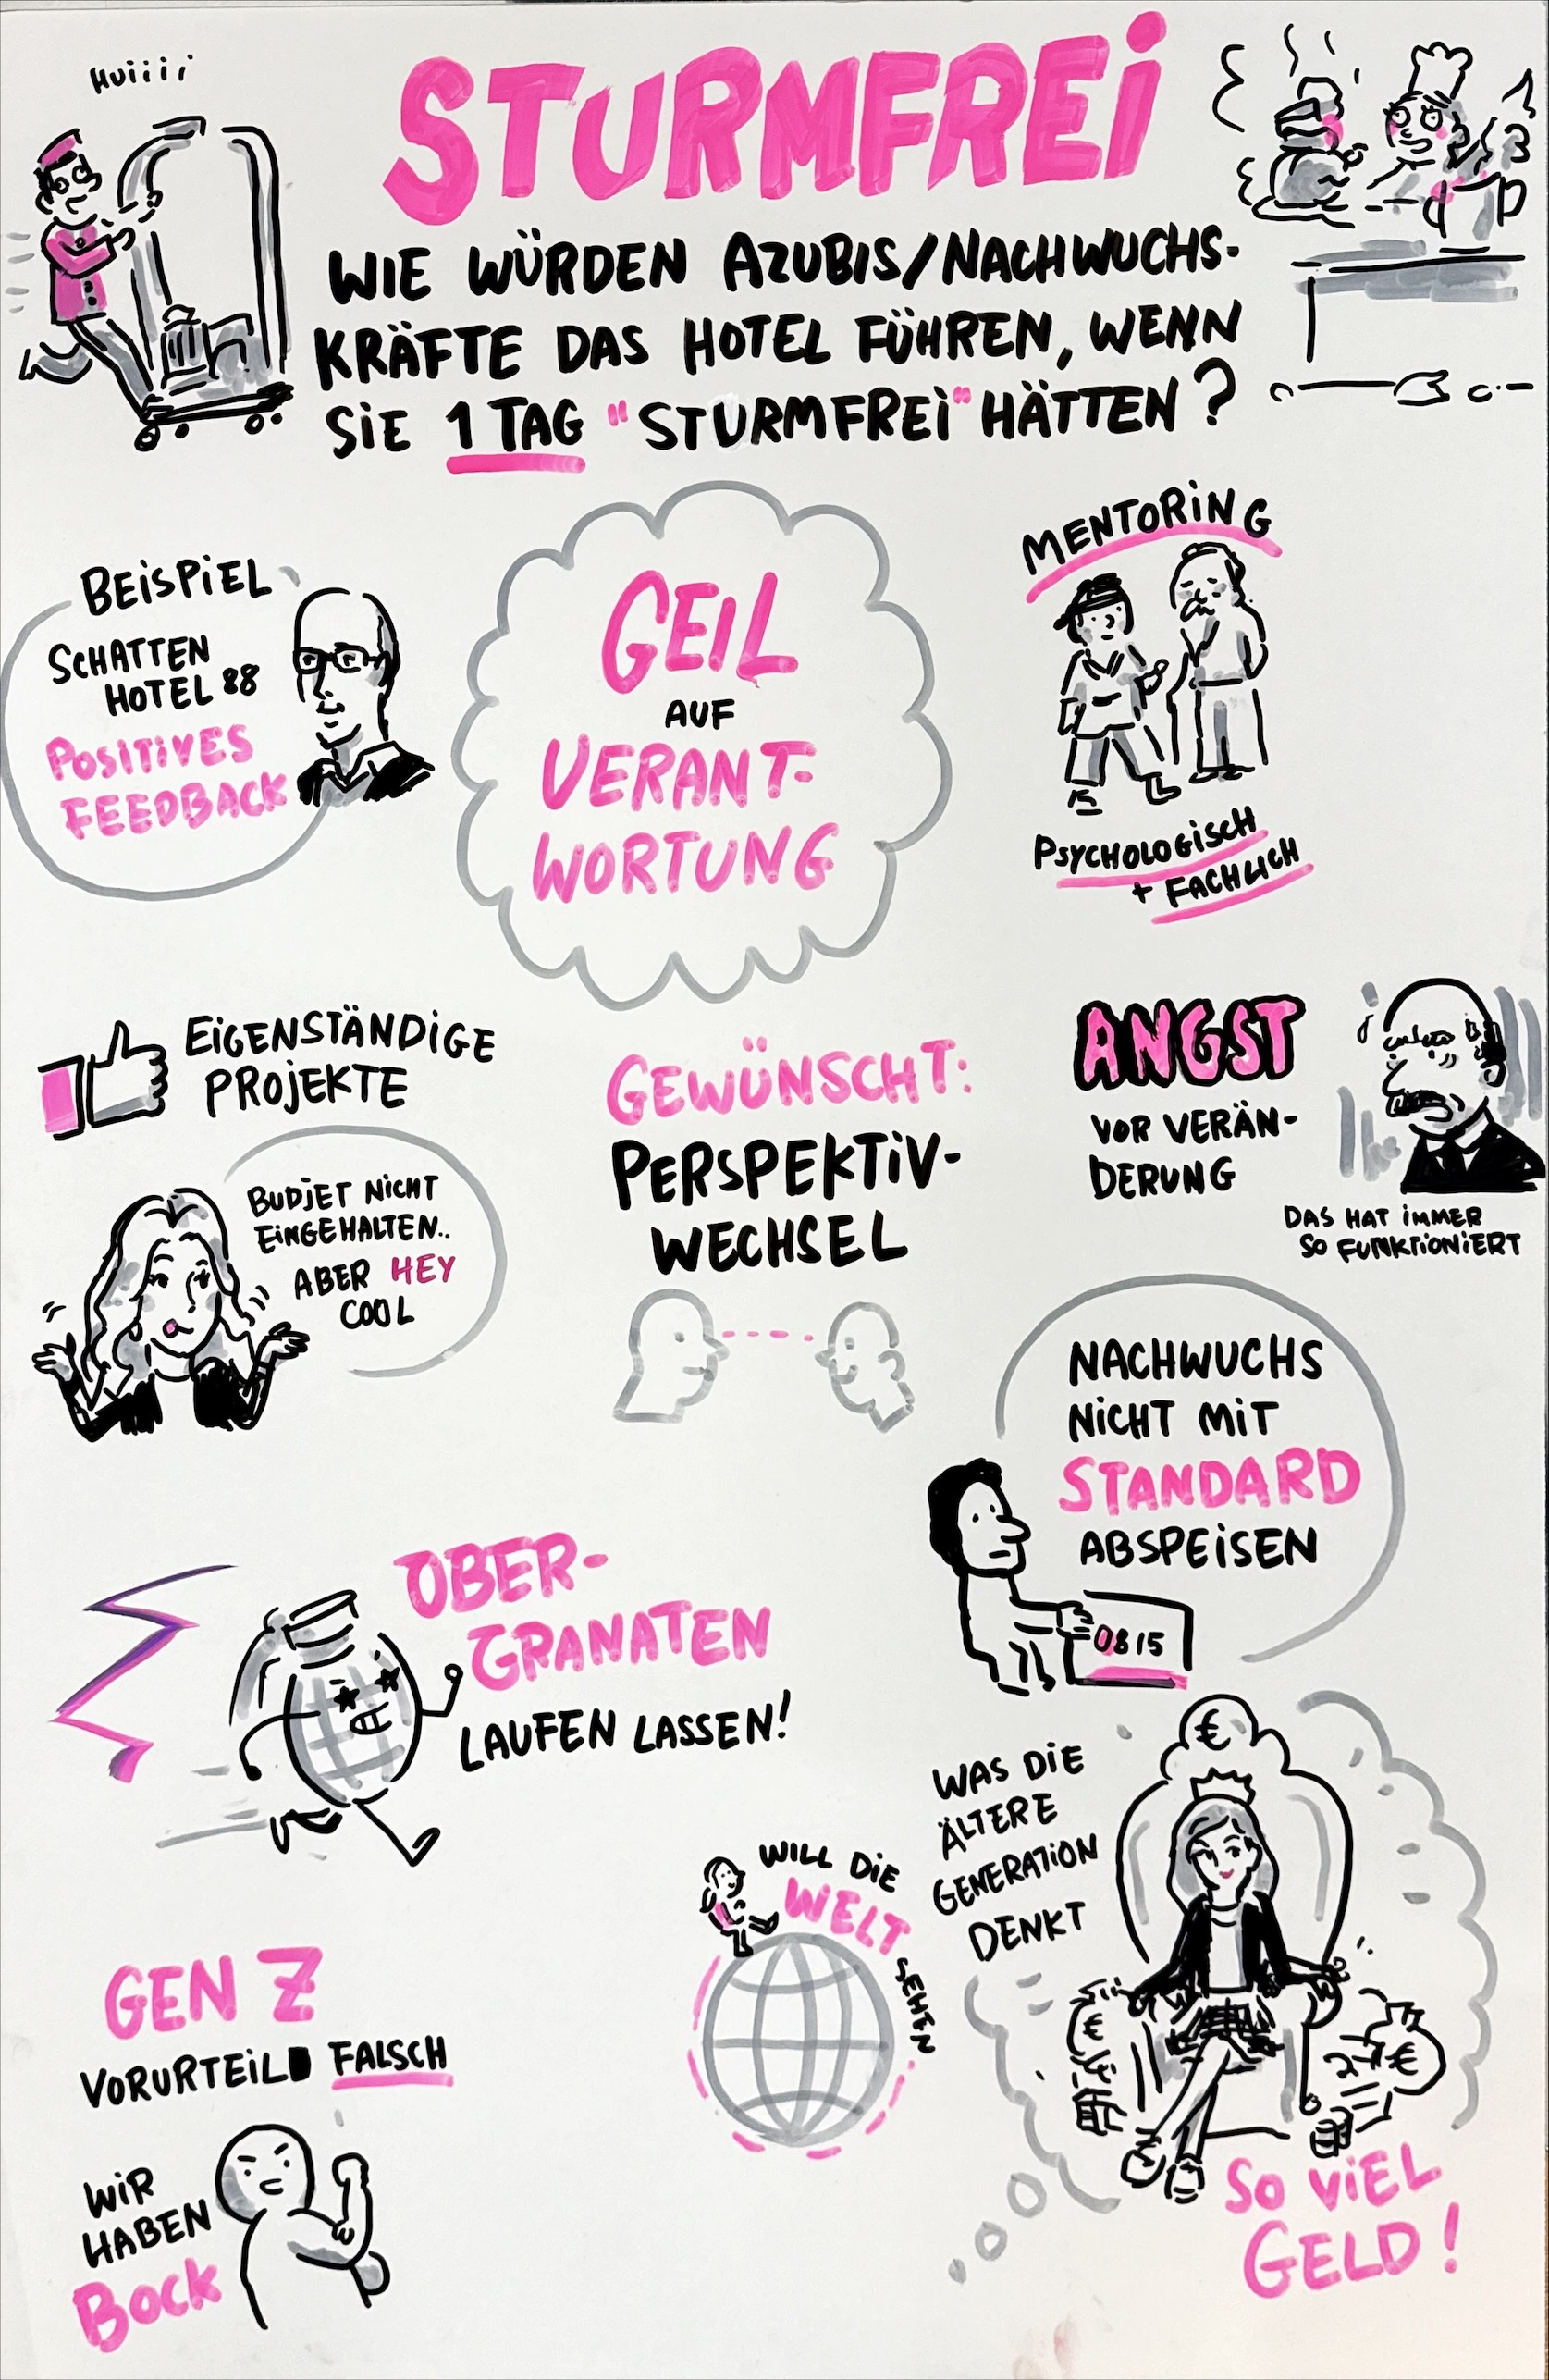 HUiiii
STURMFREI
WIE WÜRDEN AZUBIS/NACHWUCHS-
KRÄFTE DAS HOTEL FÜHREN, WENN
SIE 1 TAG "STURMFREI" HÄTTEN?
BEISPIEL
SCHATTEN
HOTEL 88
POSITIVES
FEEDBACK
GEIL
AUF
VERANT-
WORTUNG
MENTORING
PSYCHOLOGISCH
+ FACHLICH
EIGENSTÄNDIGE
PROJEKTE
BUDJET NICHT
EINGEHALTEN..
ABER HEY
COOL
GEWÜNSCHT:
PERSPEKTIV-
WECHSEL
ANGST
VOR VERÄN-
DERUNG
DAS HAT IMMER
SO FUNKTIONIERT
NACHWUCHS
NICHT MIT
STANDARD
ABSPEISEN
0815
OBER-
GRANATEN
LAUFEN LASSEN!
WAS DIE
ÄLTERE
GENERATION
DENKT
€
€
€
SO VIEL
GELD!
WILL DIE
WELT
SEHEN
GEN Z
VORURTEIL FALSCH
WIR
HABEN
BOCK